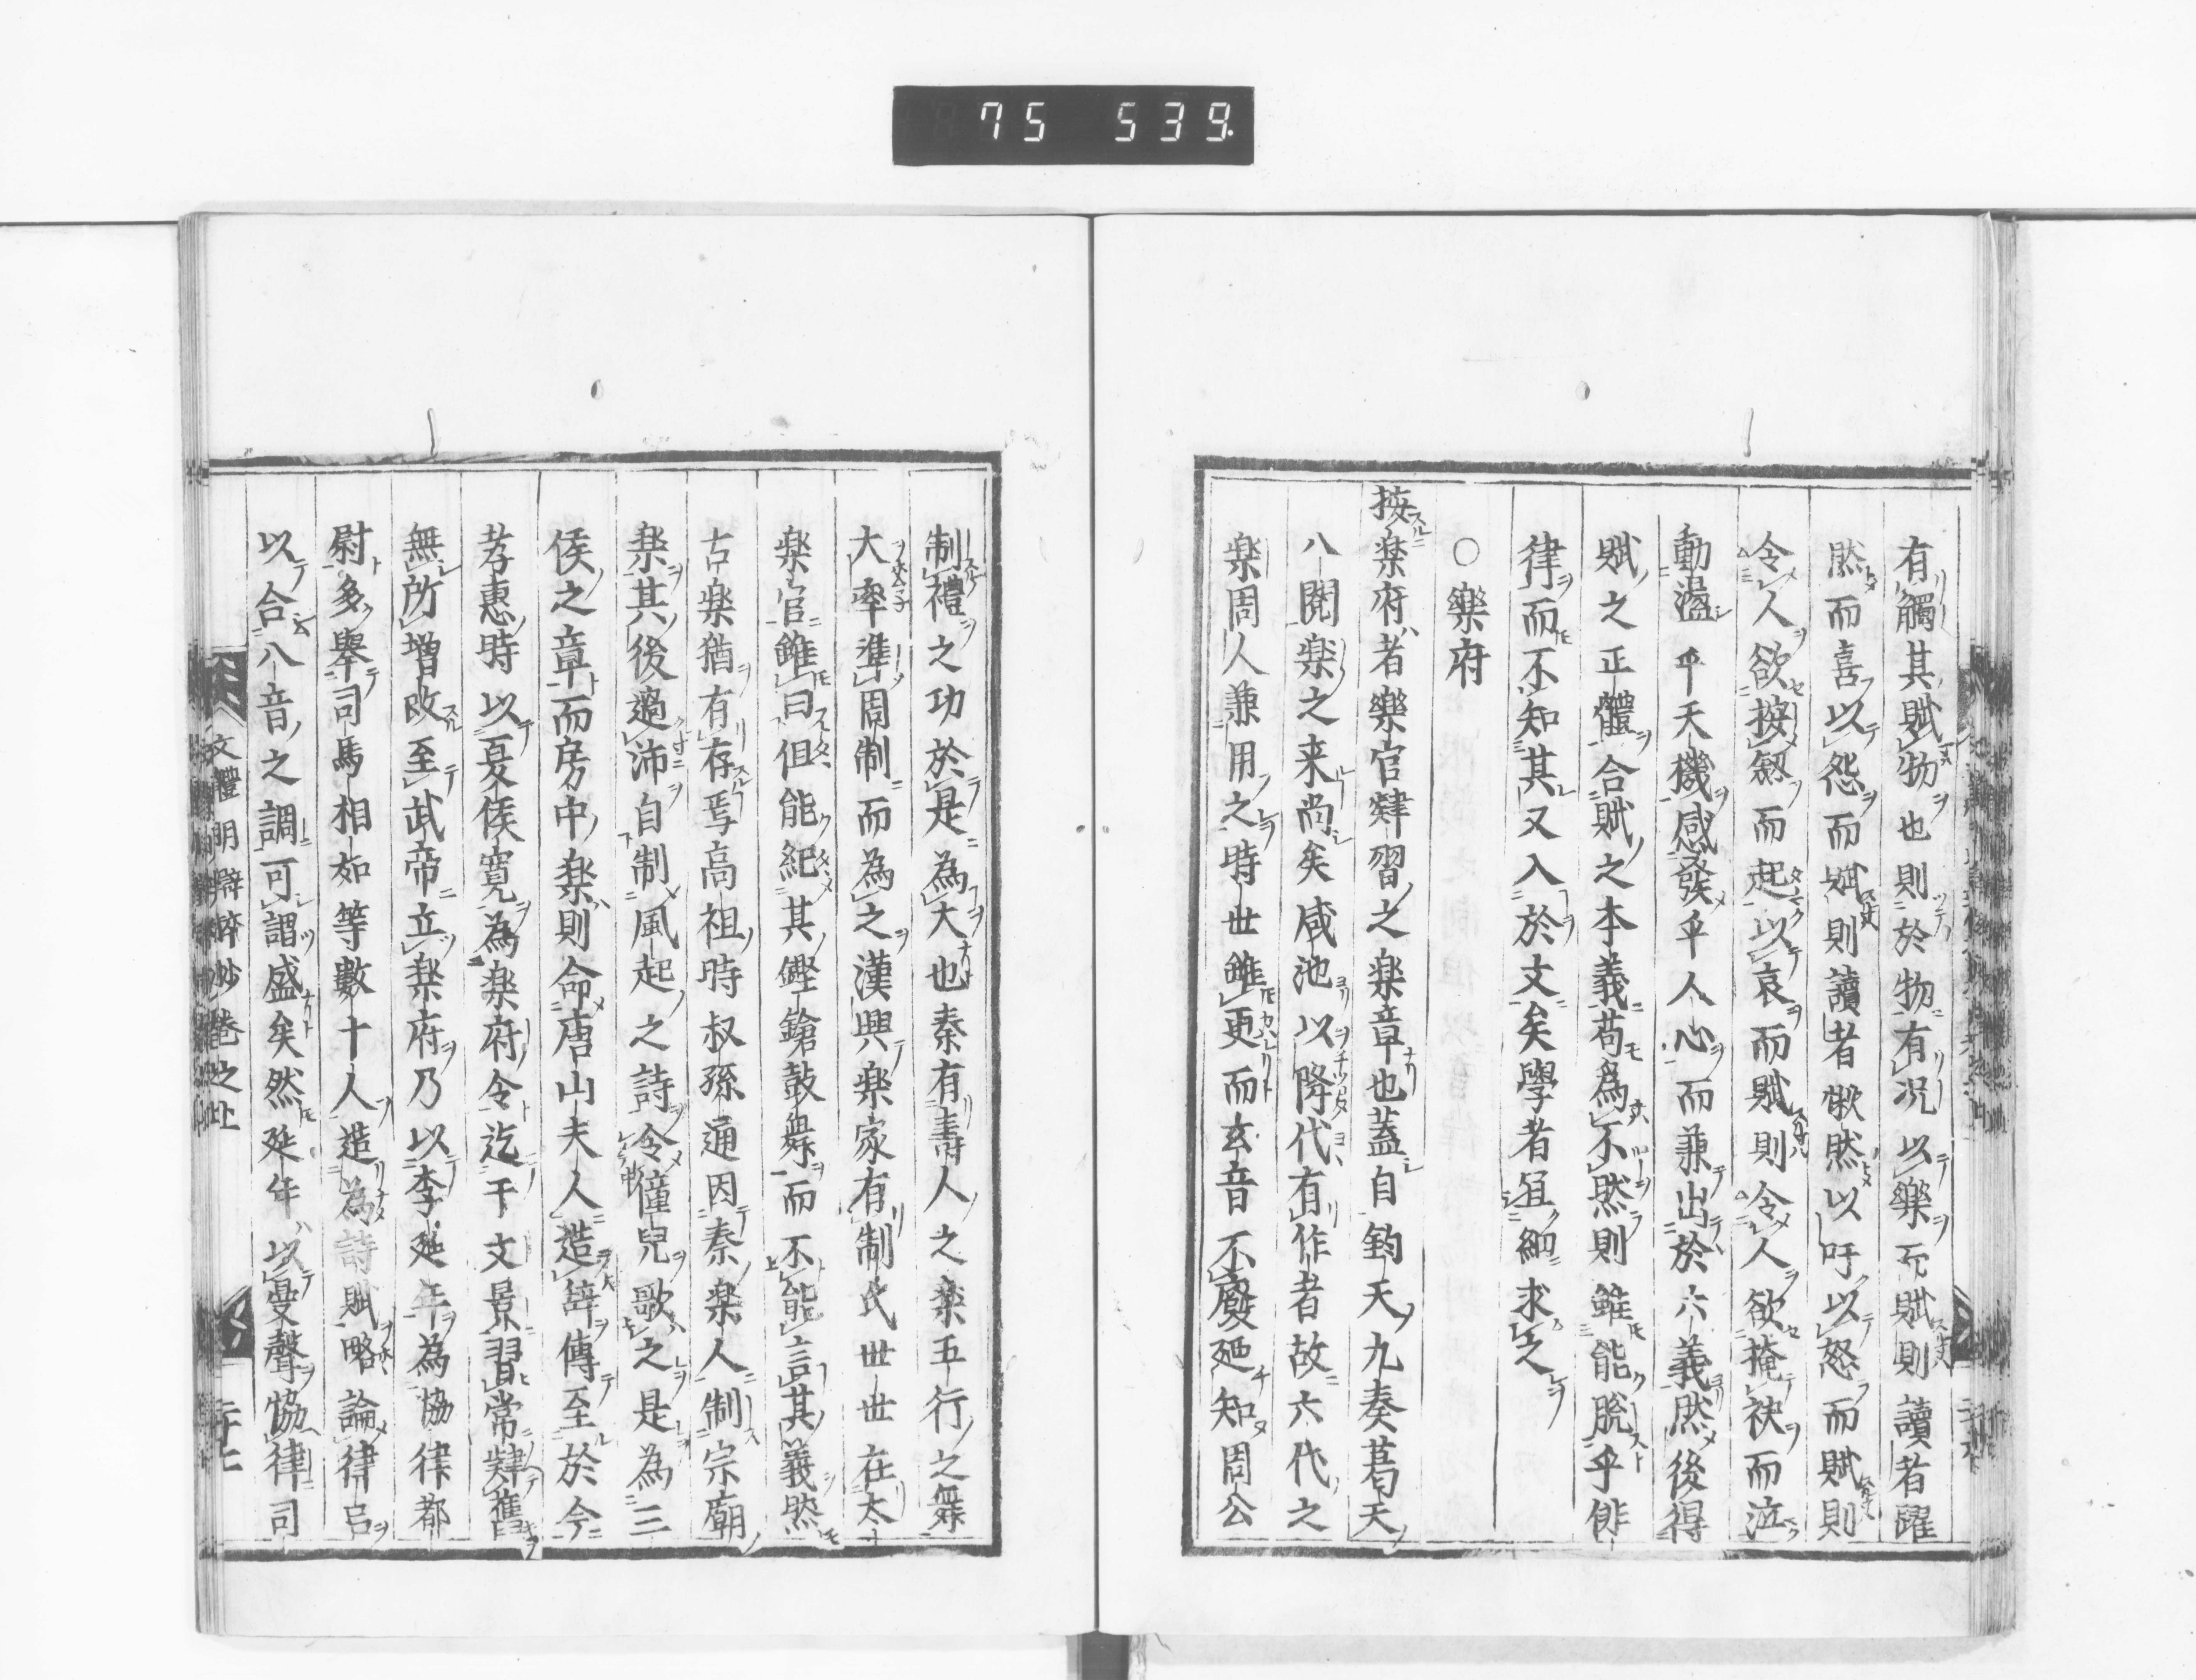 75 539.
有觸其賦物也則於物有况以樂而賦則讀者躍
然而喜以怨而賦則讀者愀然以吁以怒而賦則
令人欲按劔而起以哀而賦則令人欲掩袂而泣
動盪乎天機感發乎人心而兼出於六義然後得
賦之正體合賦之本義苟爲不然則雖能脫乎俳
律而不知其又入於文矣學者宜細求之
○樂府
按楽府者樂官肄習之楽章也蓋自鈞天九奏葛天
八闋楽之来尚矣咸池以降代有作者故六代之
楽周人兼用之時世雖更而玄音不廢廼知周公
制禮之功於是為大也秦有壽人之楽五行之舞
大率準周制而為之漢興楽家有制氏世世在太
楽官雖曰但能紀其鏗鎗鼓舞而不能言其義然
古楽猶有存焉高祖時叔孫通因秦楽人制宗廟
楽其後過沛自制風起之詩令僮兒歌之是為三
侯之章而房中楽則命唐山夫人造辭傳至於今
孝惠時以夏侯寬為楽府令迄于文景習常肄舊
無所增改至武帝立楽府乃以李延年為協律都
尉多擧司馬相如等數十人造為詩賦略論律呂
以合八音之調可謂盛矣然延年以曼聲協律司
文體明辯粹抄卷之上
二十七